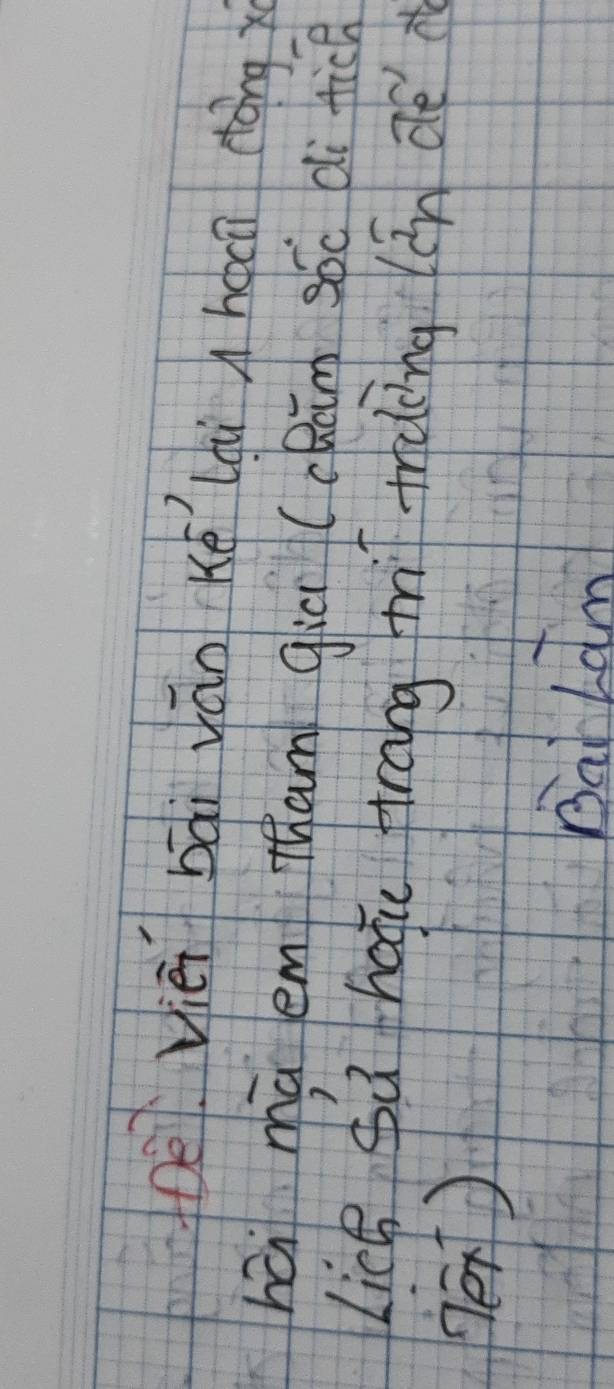 Đề: Viết bài văn kể lại 1 hoạt động
hội mà em tham gia (chăm sóc di tích
Lịch sử hoặc trang trí trường lớn để
Tết)
Bài Làm